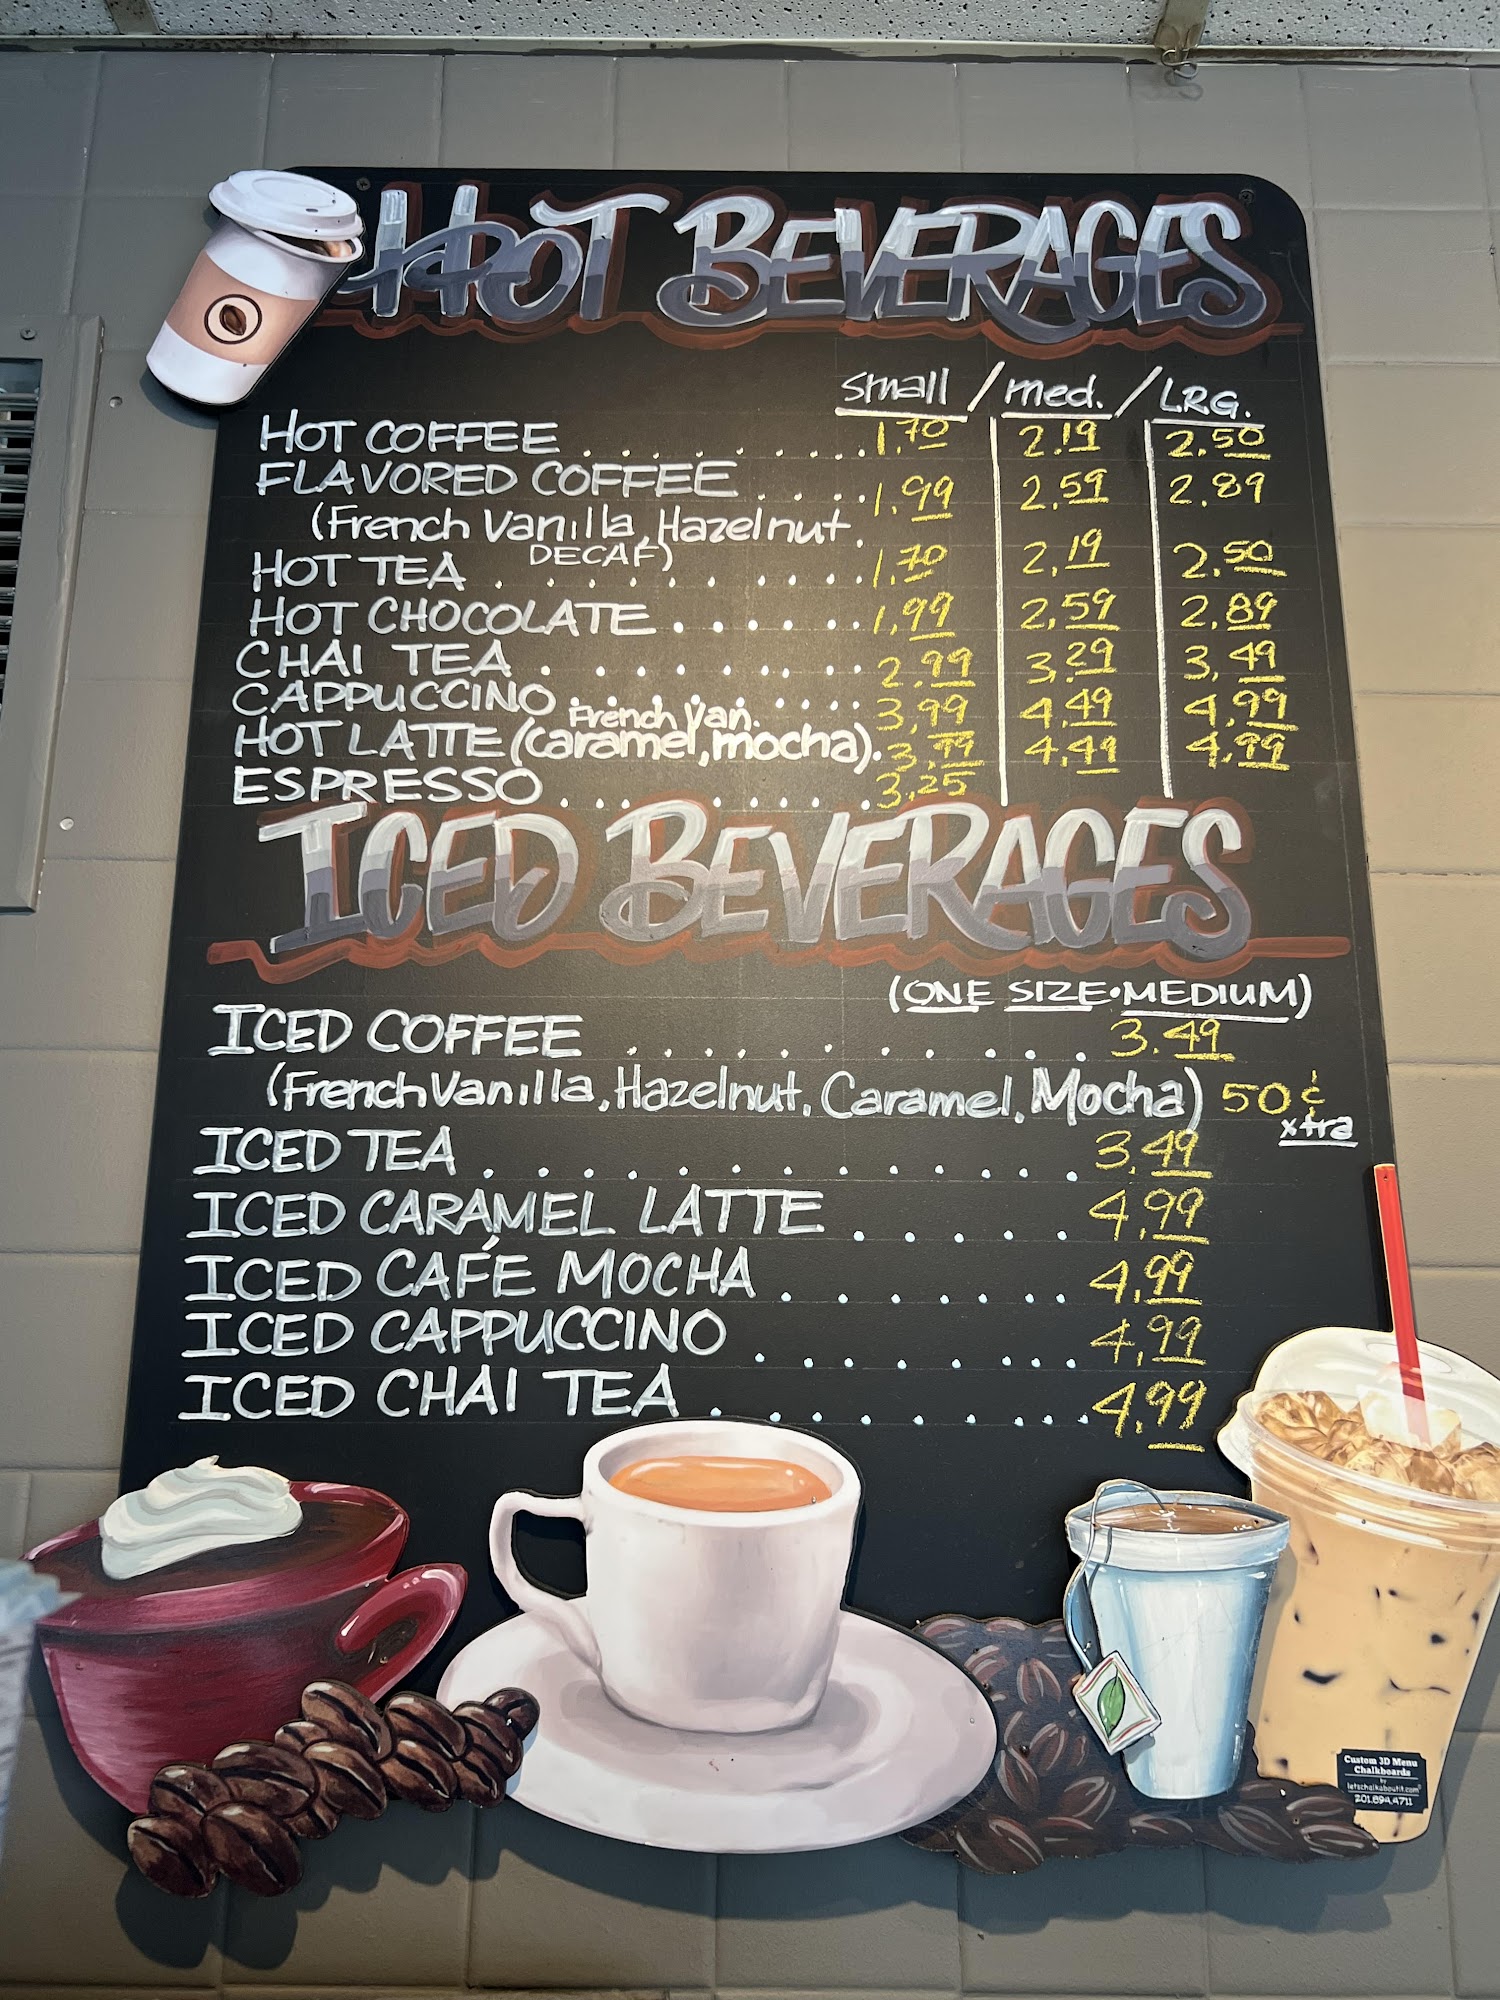 HOT BEVERAGES
small / med. / LRG.
HOT COFFEE . . . . . . . . . 1.70 2.19 2.50
FLAVORED COFFEE . . . . 1.99 2.59 2.89
(French Vanilla, Hazelnut,
DECAF)
HOT TEA . . . . . . . . . . 1.70 2.19 2.50
HOT CHOCOLATE . . . . . . 1.99 2.59 2.89
CHAI TEA . . . . . . . . 2.99 3.29 3.49
CAPPUCCINO . . . . . . . . 3.99 4.49 4.99
French Van.
HOT LATTE (caramel, mocha). 3.99 4.49 4.99
ESPRESSO . . . . . . . . 3.25
ICED BEVERAGES
(ONE SIZE • MEDIUM)
ICED COFFEE . . . . . . . . . . . 3.49
(French Vanilla, Hazelnut, Caramel, Mocha) 50¢
xtra
ICED TEA . . . . . . . . . . . . . 3.49
ICED CARAMEL LATTE . . . . . 4.99
ICED CAFÉ MOCHA . . . . . . . 4.99
ICED CAPPUCCINO . . . . . . . . 4.99
ICED CHAI TEA . . . . . . . . . 4.99
Custom 3D Menu
Chalkboards
by
letschalkaboutit.com
201.894.4711